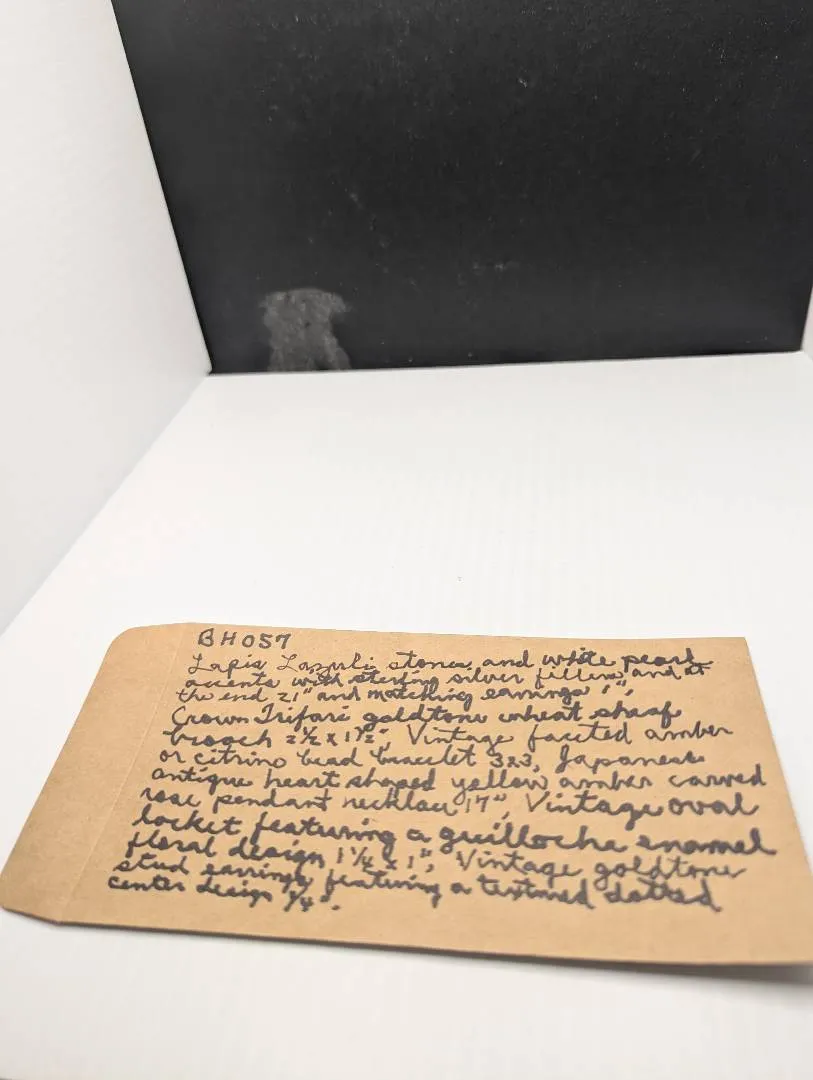 BH057
Lapis Lazzuli stones, and white pearl
accents with sterling silver fillers, and at
the end 21" and matching earrings 1",
Crown Trifari goldtone wheat sheaf
brooch 2½ x 1½", Vintage faceted amber
or citrino bead bracelet 3x3, Japanese
antique heart shaped yellow amber carved
rose pendant necklace 17", Vintage oval
locket featuring a guilloche enamel
floral design 1¼ x 1", Vintage goldtone
stud earrings featuring a textured dotted
center design ¾".